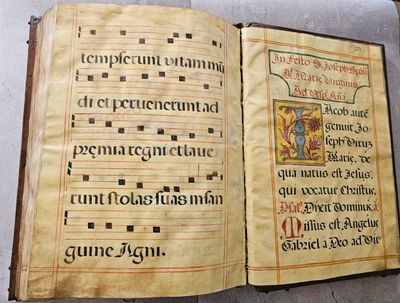 tempserunt vitam mū
di et peruenerunt ad
pręmia regni et laue
runt stolas suas in san
guine Agni.
In Festo S. Joseph Spōsi
B. Mariæ Virginis
Ad Vesp. Añā.
Iacob autē
genuit Jo
seph Virum
Mariæ, de
qua natus est Jesus,
qui vocatur Christus,
Psal. Dixit Dominus.
Missus est Angelus
Gabriel à Deo ad